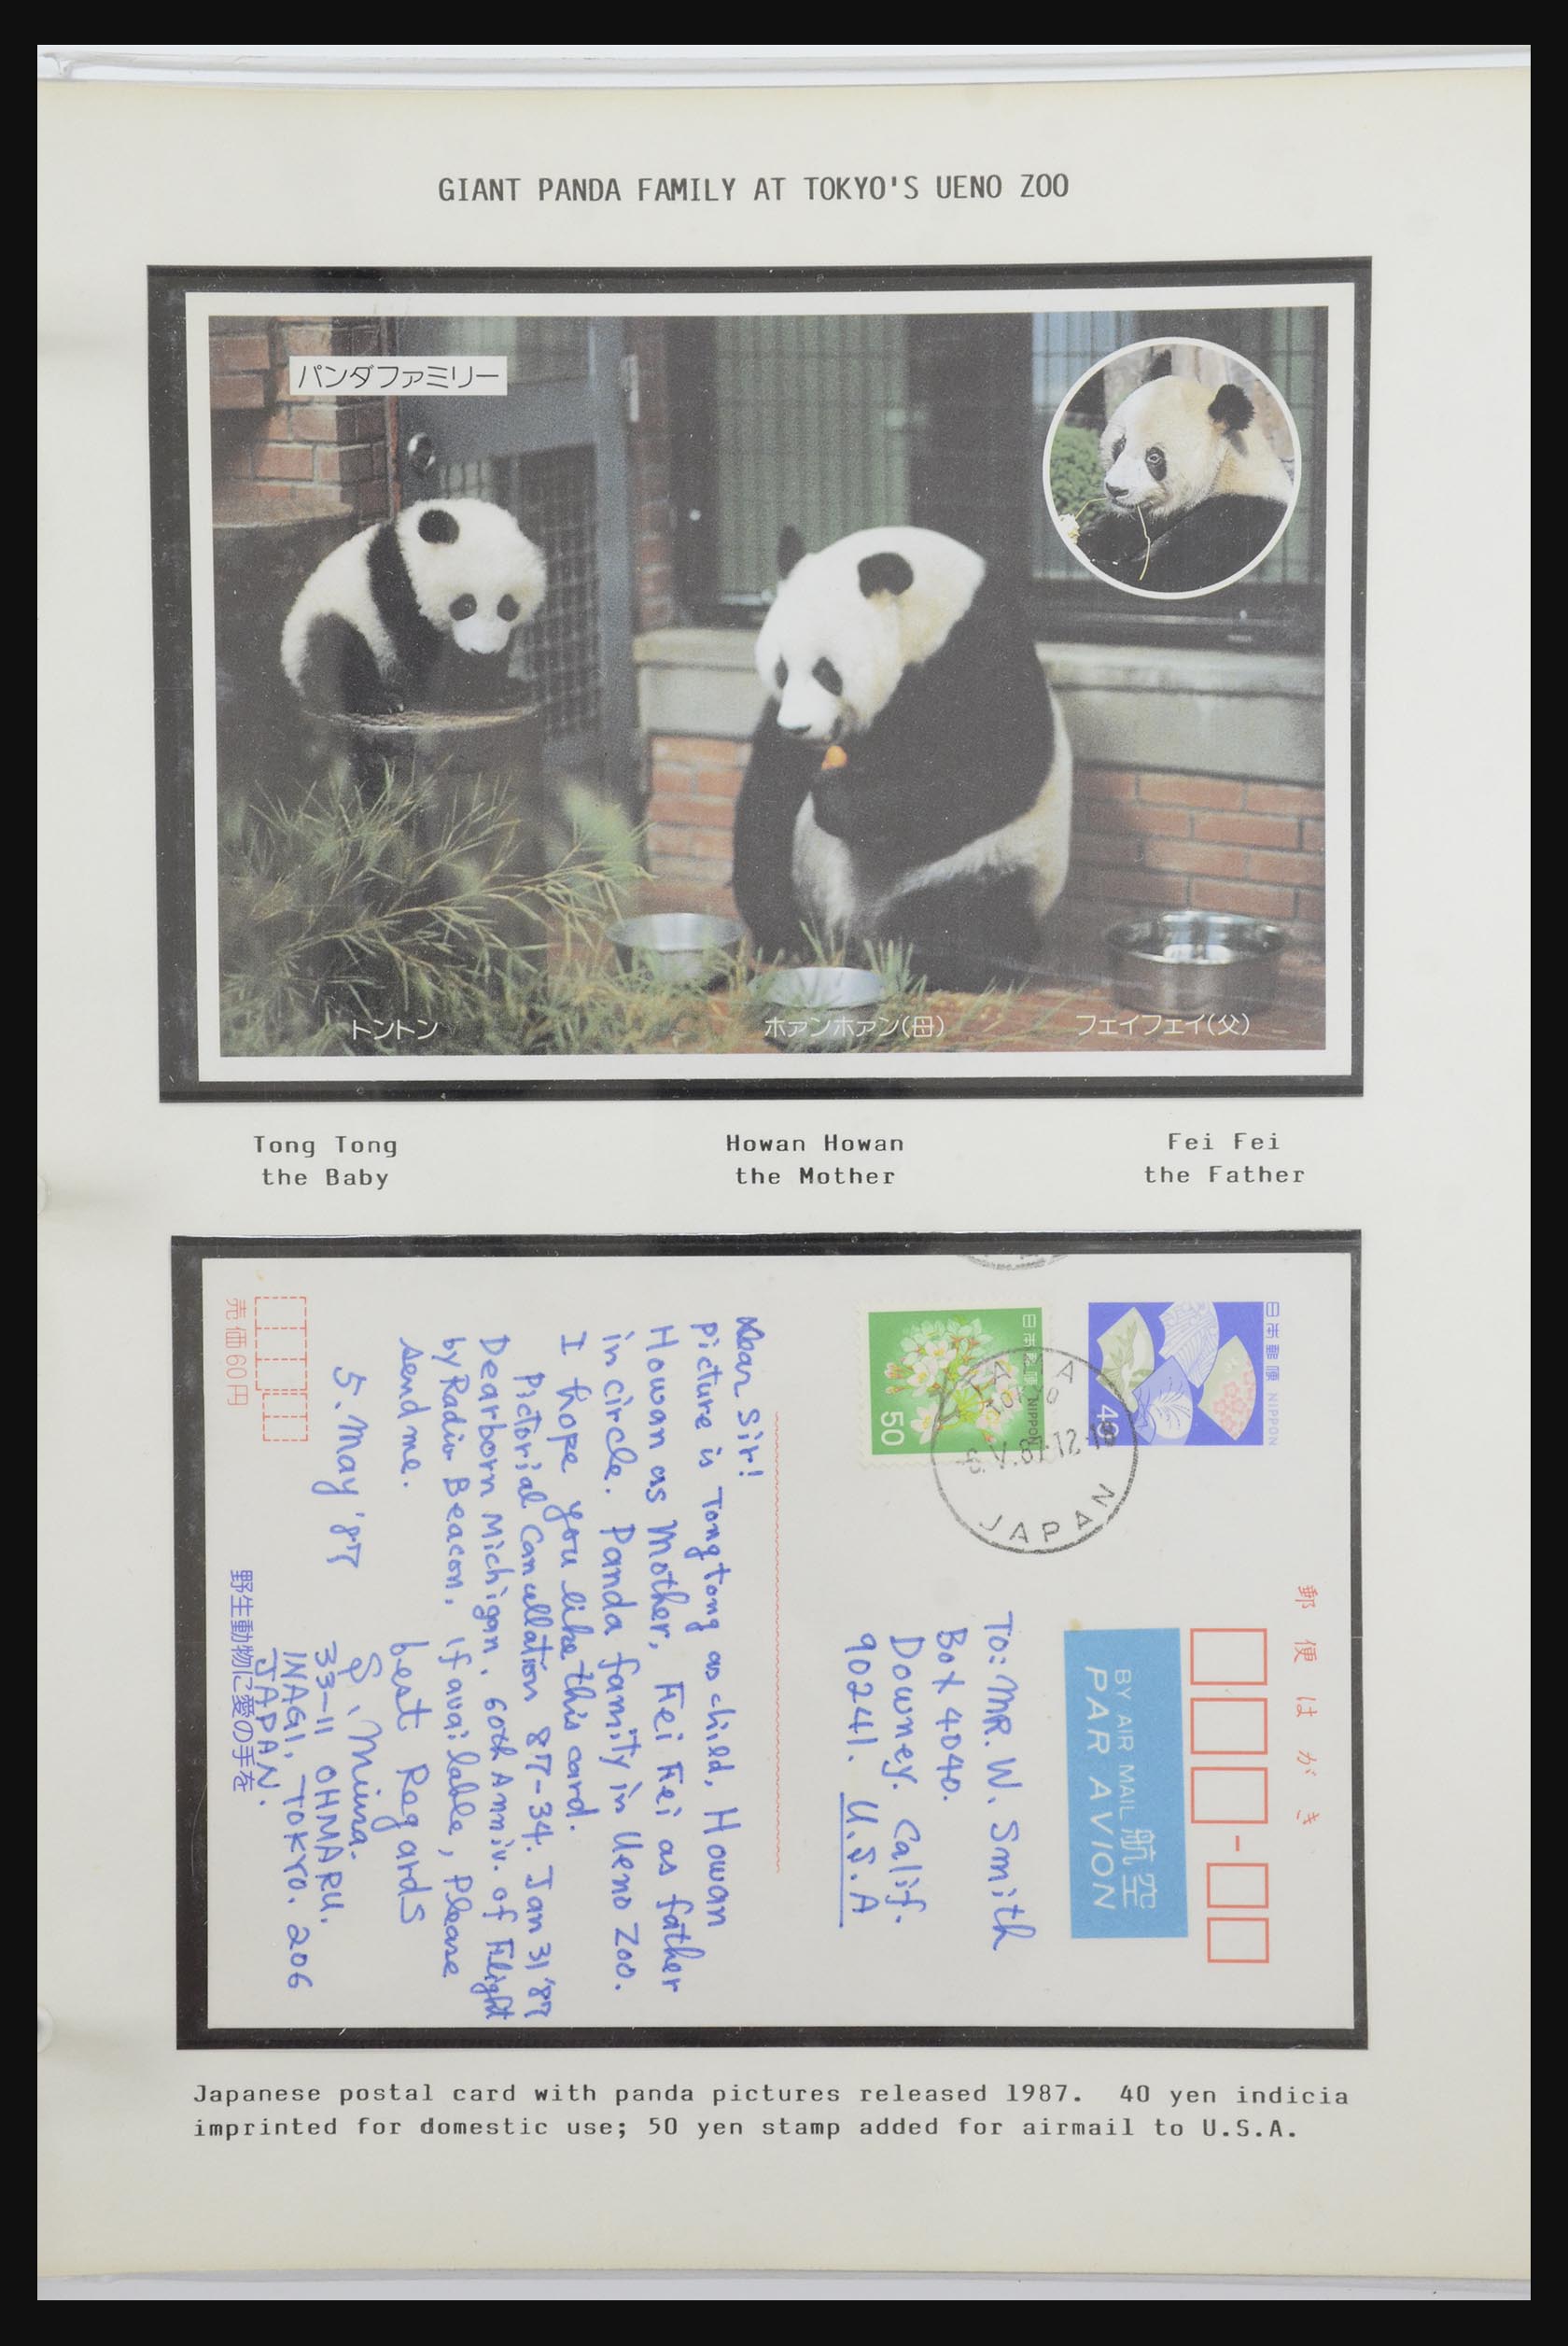 GIANT PANDA FAMILY AT TOKYO'S UENO ZOO
パンダファミリー
トントン
ホァンホァン(母)
フェイフェイ(父)
Tong Tong
the Baby
Howan Howan
the Mother
Fei Fei
the Father
郵便はがき
日本郵便 NIPPON
40
日本郵便 NIPPON
50
TOKYO
JAPAN
BY AIR MAIL 航空
PAR AVION
To: MR. W. Smith
Box 4040.
Downey. Calif.
90241. U.S.A
Dear Sir!
Picture is Tong tong as child, Howan
Howan as Mother, Fei Fei as father
in circle. Panda family in Ueno Zoo.
I hope you like this card.
Pictorial Cancellation 87-34. Jan 31 '87
Dearborn Michigan. 60th Anniv. of Flight
by Radio Beacon, if available, Please
send me.
best Regards
5. May '87
S. Miura.
33-11 OHMARU.
INAGI, TOKYO. 206
JAPAN.
売価60円
野生動物に愛の手を
Japanese postal card with panda pictures released 1987.  40 yen indicia
imprinted for domestic use; 50 yen stamp added for airmail to U.S.A.